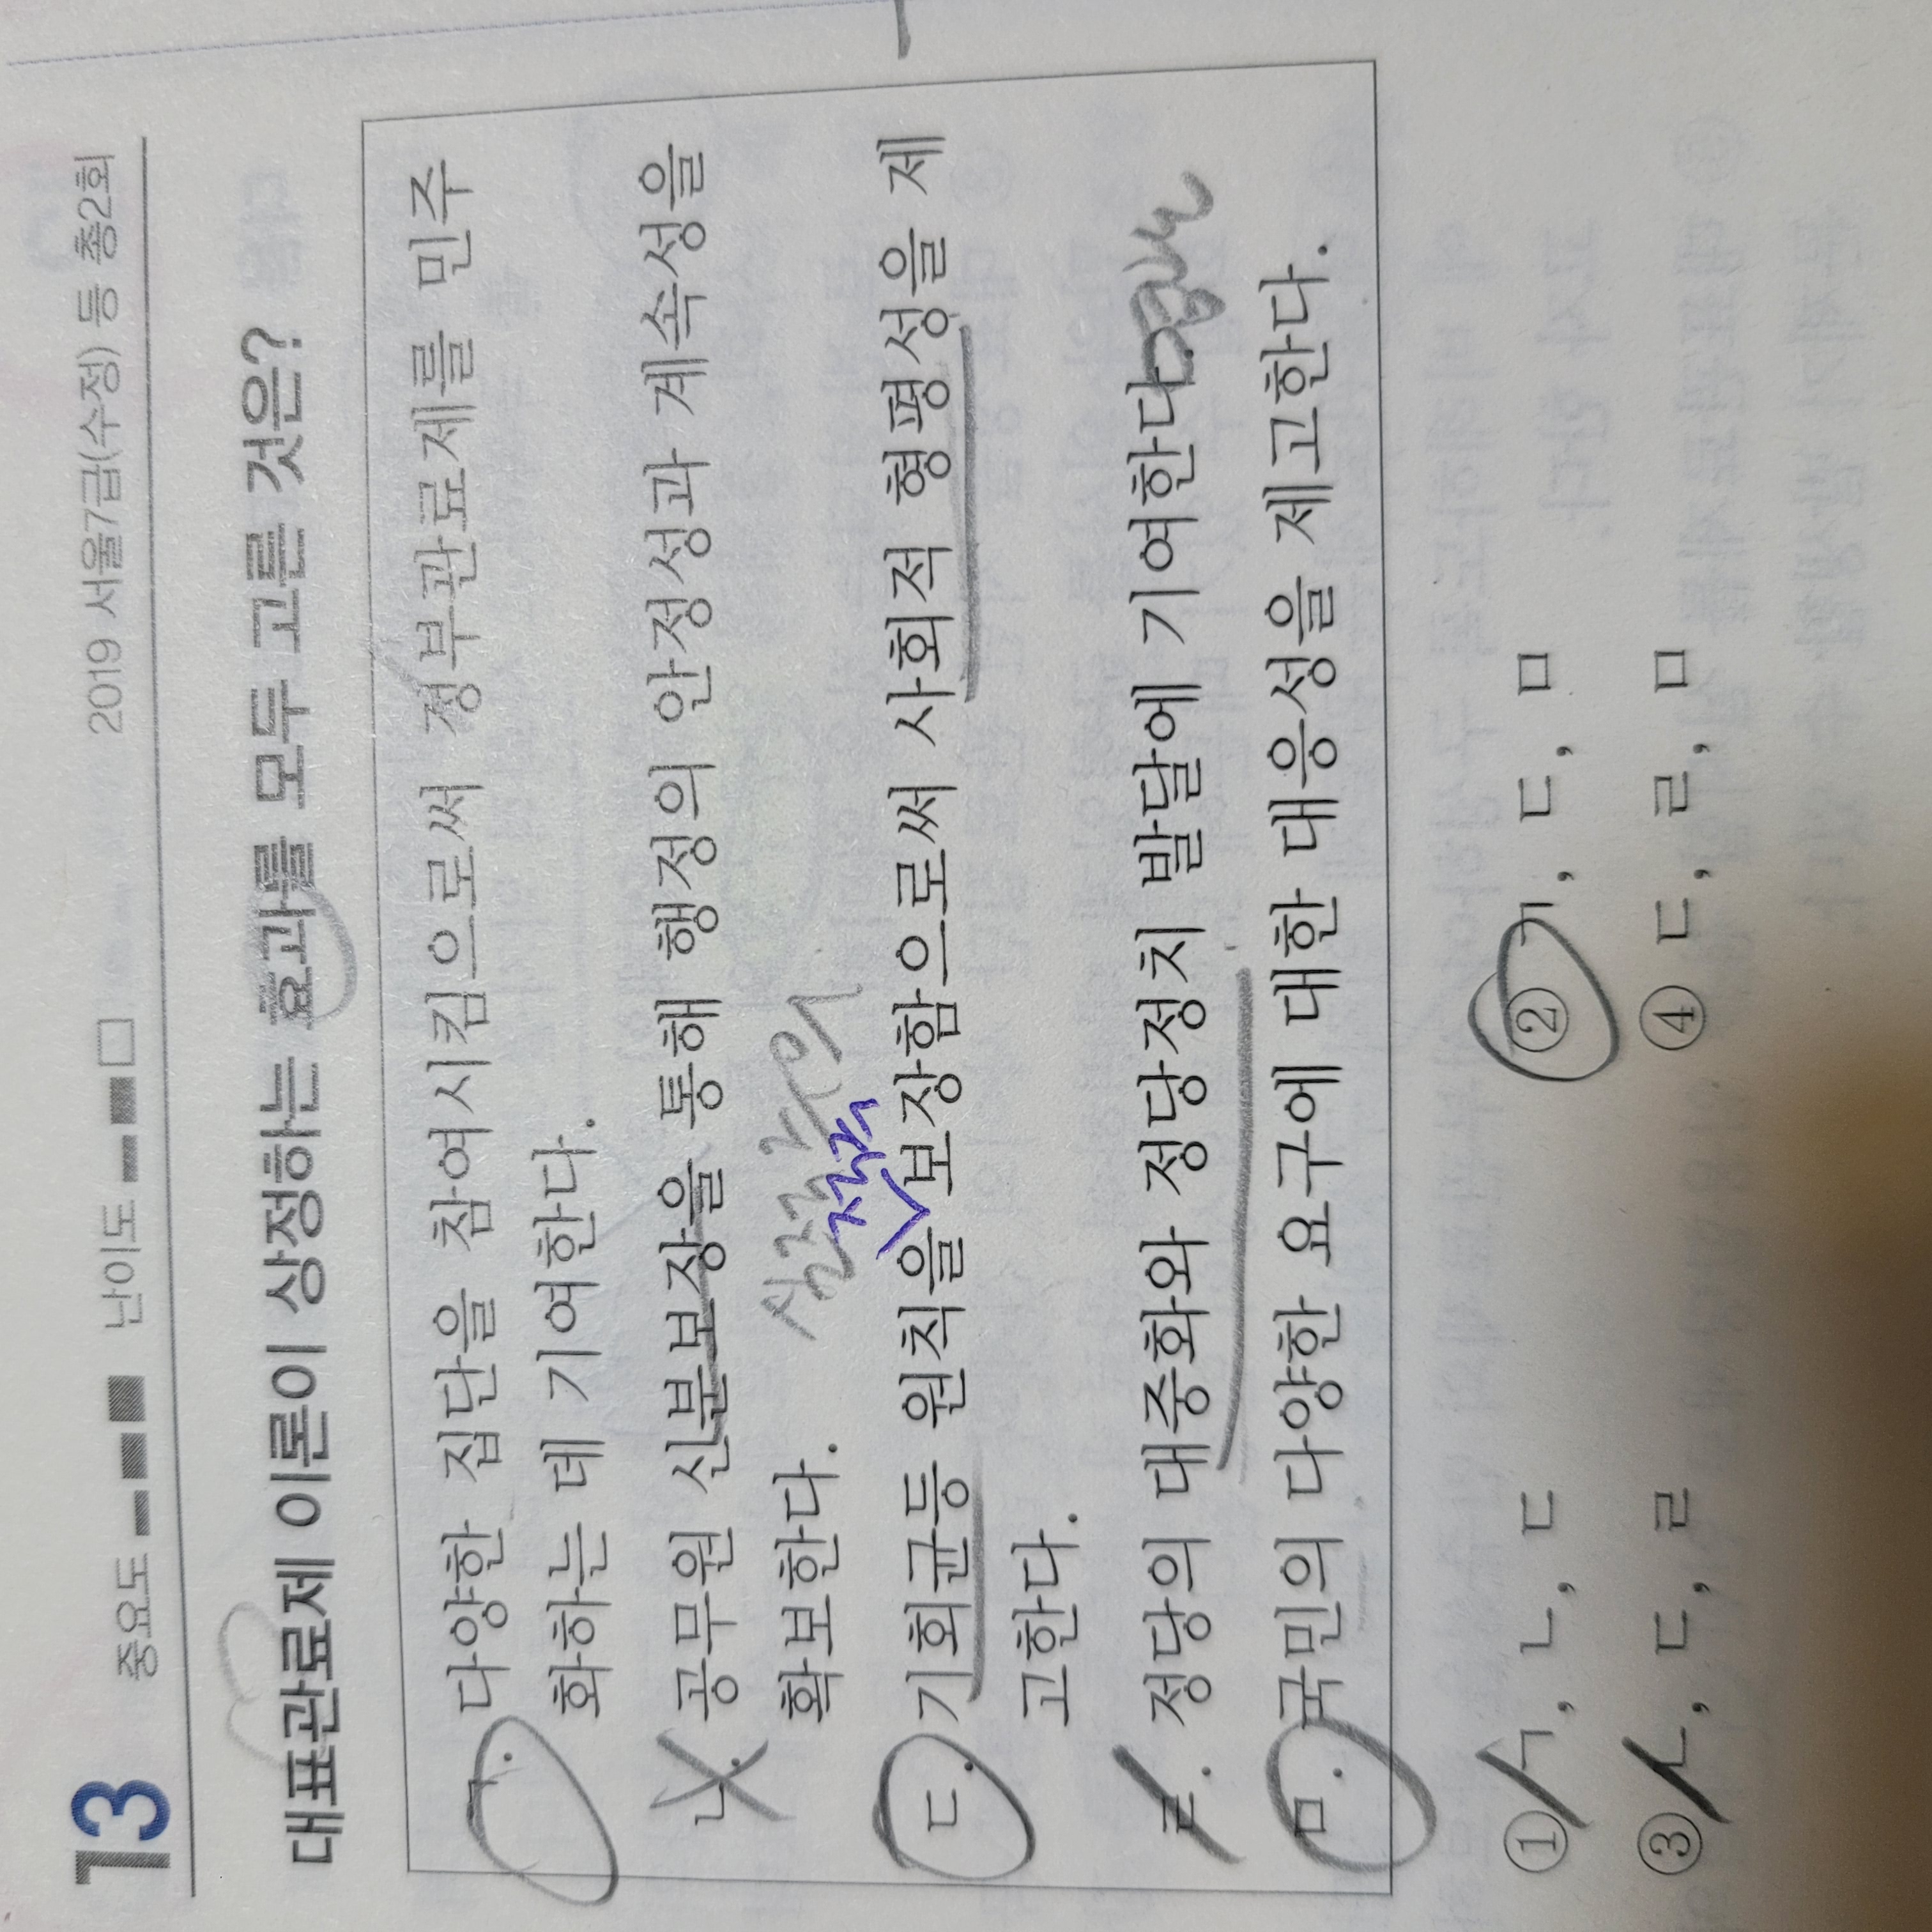 13 중요도 난이도 2019 서울7급(수정) 등 총2회
대표관료제 이론이 상정하는 효과를 모두 고른 것은?
ㄱ. 다양한 집단을 참여시킴으로써 정부관료제를 민주
화하는 데 기여한다.
ㄴ. 공무원 신분보장을 통해 행정의 안정성과 계속성을
확보한다.
실적주의
ㄷ. 기회균등 원칙을 보장함으로써 사회적 형평성을 제
고한다.
ㄹ. 정당의 대중화와 정당정치 발달에 기여한다.
ㅁ. 국민의 다양한 요구에 대한 대응성을 제고한다.
① ㄱ, ㄴ, ㄷ ② ㄱ, ㄷ, ㅁ
③ ㄴ, ㄷ, ㄹ ④ ㄷ, ㄹ, ㅁ